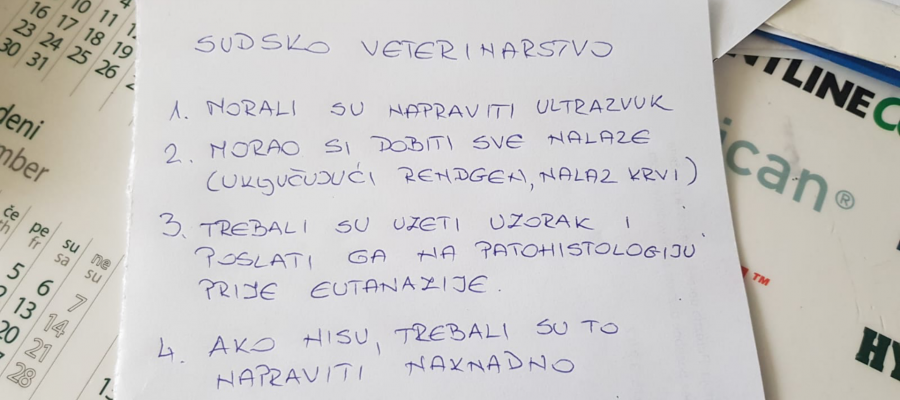 SUDSKO VETERINARSTVO
1. MORALI SU NAPRAVITI ULTRAZVUK
2. MORAO SI DOBITI SVE NALAZE
(UKLJUČUJUĆI RENDGEN, NALAZ KRVI)
3. TREBALI SU UZETI UZORAK I
POSLATI GA NA PATOHISTOLOGIJU
PRIJE EUTANAZIJE.
4. AKO NISU, TREBALI SU TO
NAPRAVITI NAKNADNO
16 17 18 19
23 24 25 26
30 31
10 11 12
če pe su ne
fr sa su
5 6 7
13 14
20 21
28
ican®
™